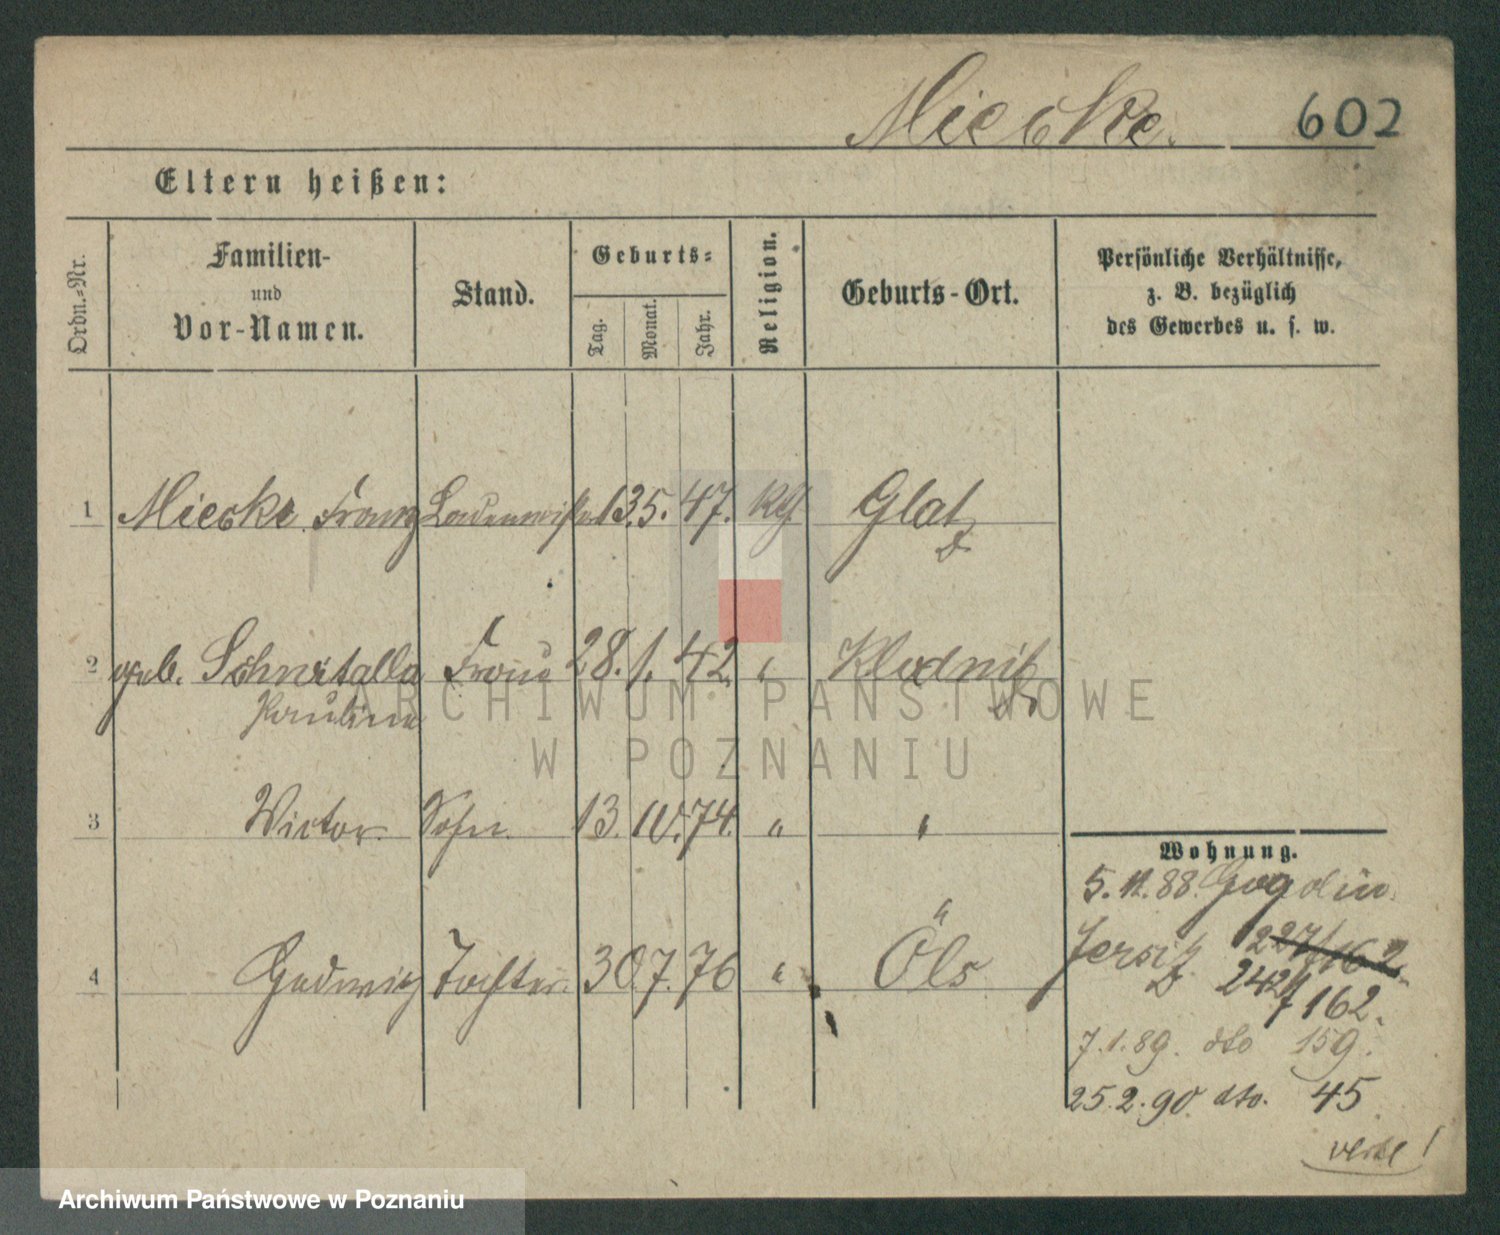 Miecke. 602
Eltern heißen:
Ordn.-Nr.
Familien-
und
Vor-Namen.
Stand.
Geburts-
Tag.
Monat.
Jahr.
Religion.
Geburts-Ort.
Persönliche Verhältnisse,
z. B. bezüglich
des Gewerbes u. s. w.
1 Miecke Franz 13. 5. 47. Glatz
2 geb. Schwitalla Frau 28. 1. 42. " Klodnitz
Pauline
3 Victor. Sohn. 13. IV. 74. " "
4 Hedwig Tochter. 30. 7. 76 " Öls
"
Wohnung.
5. 11. 88. Gogolin.
Jersitz 227/162
242/162.
7. 1. 89. dto 159.
25. 2. 90 dto. 45
verte!
ARCHIWUM PAŃSTWOWE
W POZNANIU
Archiwum Państwowe w Poznaniu